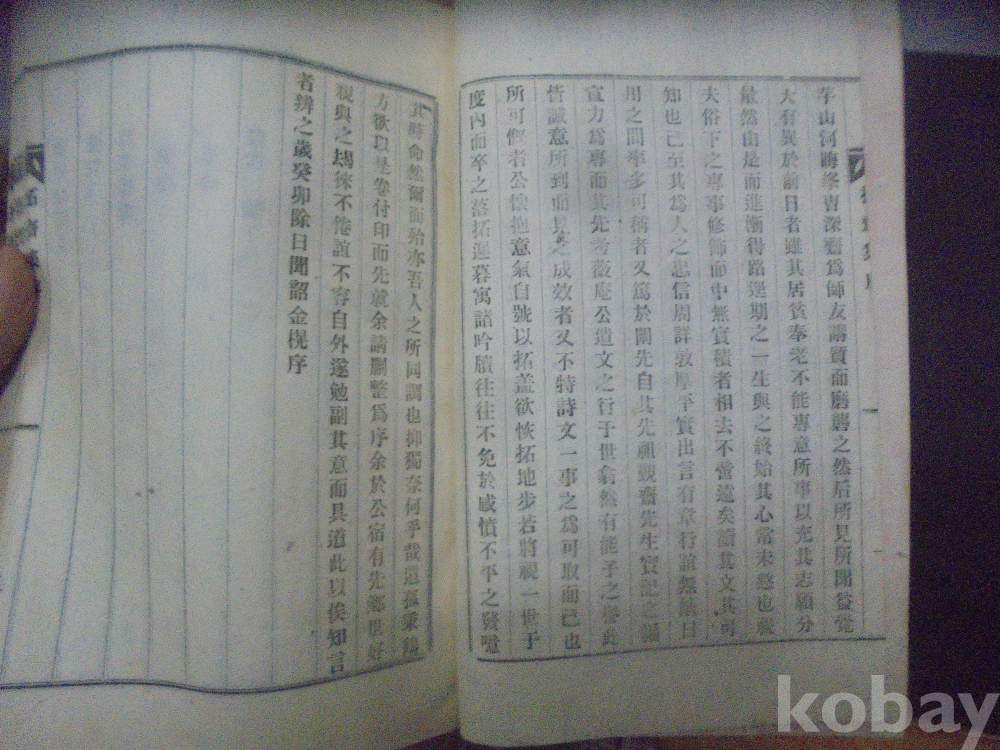 芋山河晦峯曺深齋爲師友講質而磨礱之然后所見所聞益覺
大有異於前日者雖其居貧奉老不能專意所事以充其志願分
量然由是而進漸得路逕期之一生與之終始其心常未憗也視
夫俗下之專事修飾而中無實積者相去不啻遠矣讀其文其可
知也已至其爲人之忠信周詳敦厚平實出言有章行誼無
用之間率多可稱者又篤於闡先自其先祖觀齋先生實記之
宣力爲專而其先考薇庵公遺文之行于世翕然有能子之譽此
皆誠意所到而見之成效者又不特詩文一事之爲可取而已也
所可慨者公懷抱意氣自號以拓盖欲恢拓地步若將視一世于
度內而卒之落拓遲暮寓諸吟牘往往不免於感憤不平之發噫
其時命然爾而殆亦吾人之所同調也抑獨奈何乎哉遺孤秉
方欲以是卷付印而先就余請刪整爲序余於公宿有先鄕里好
親與之徘徊不倦誼不容自外遂勉副其意而具道此以俟知言
者辨之歲癸卯除日聞韶金榥序